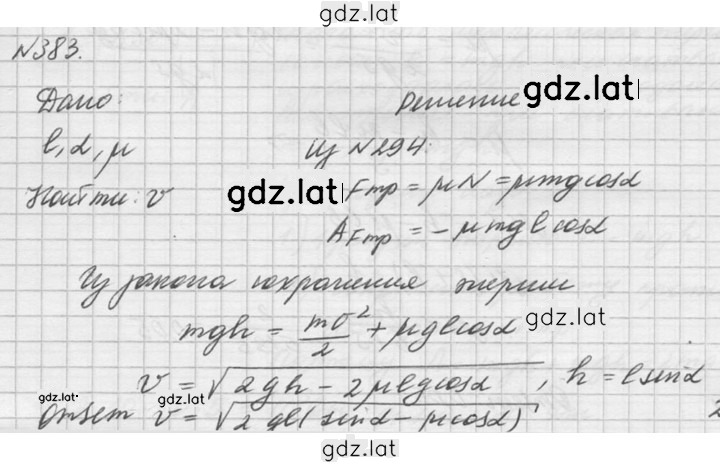 gdz.lat
N383.
Дано: Решение gdz.lat
l, α, μ Из N294:
Найти: v gdz.lat Fтр = μN = μmgcosα
AFтр = -μmglcosα
Из закона сохранения энергии
mgh = mv²/2 + μglcosα gdz.lat
v = √2gh - 2μlgcosα, h = lsinα
gdz.lat
Ответ v = √2gl(sinα - μcosα) 2
gdz.lat